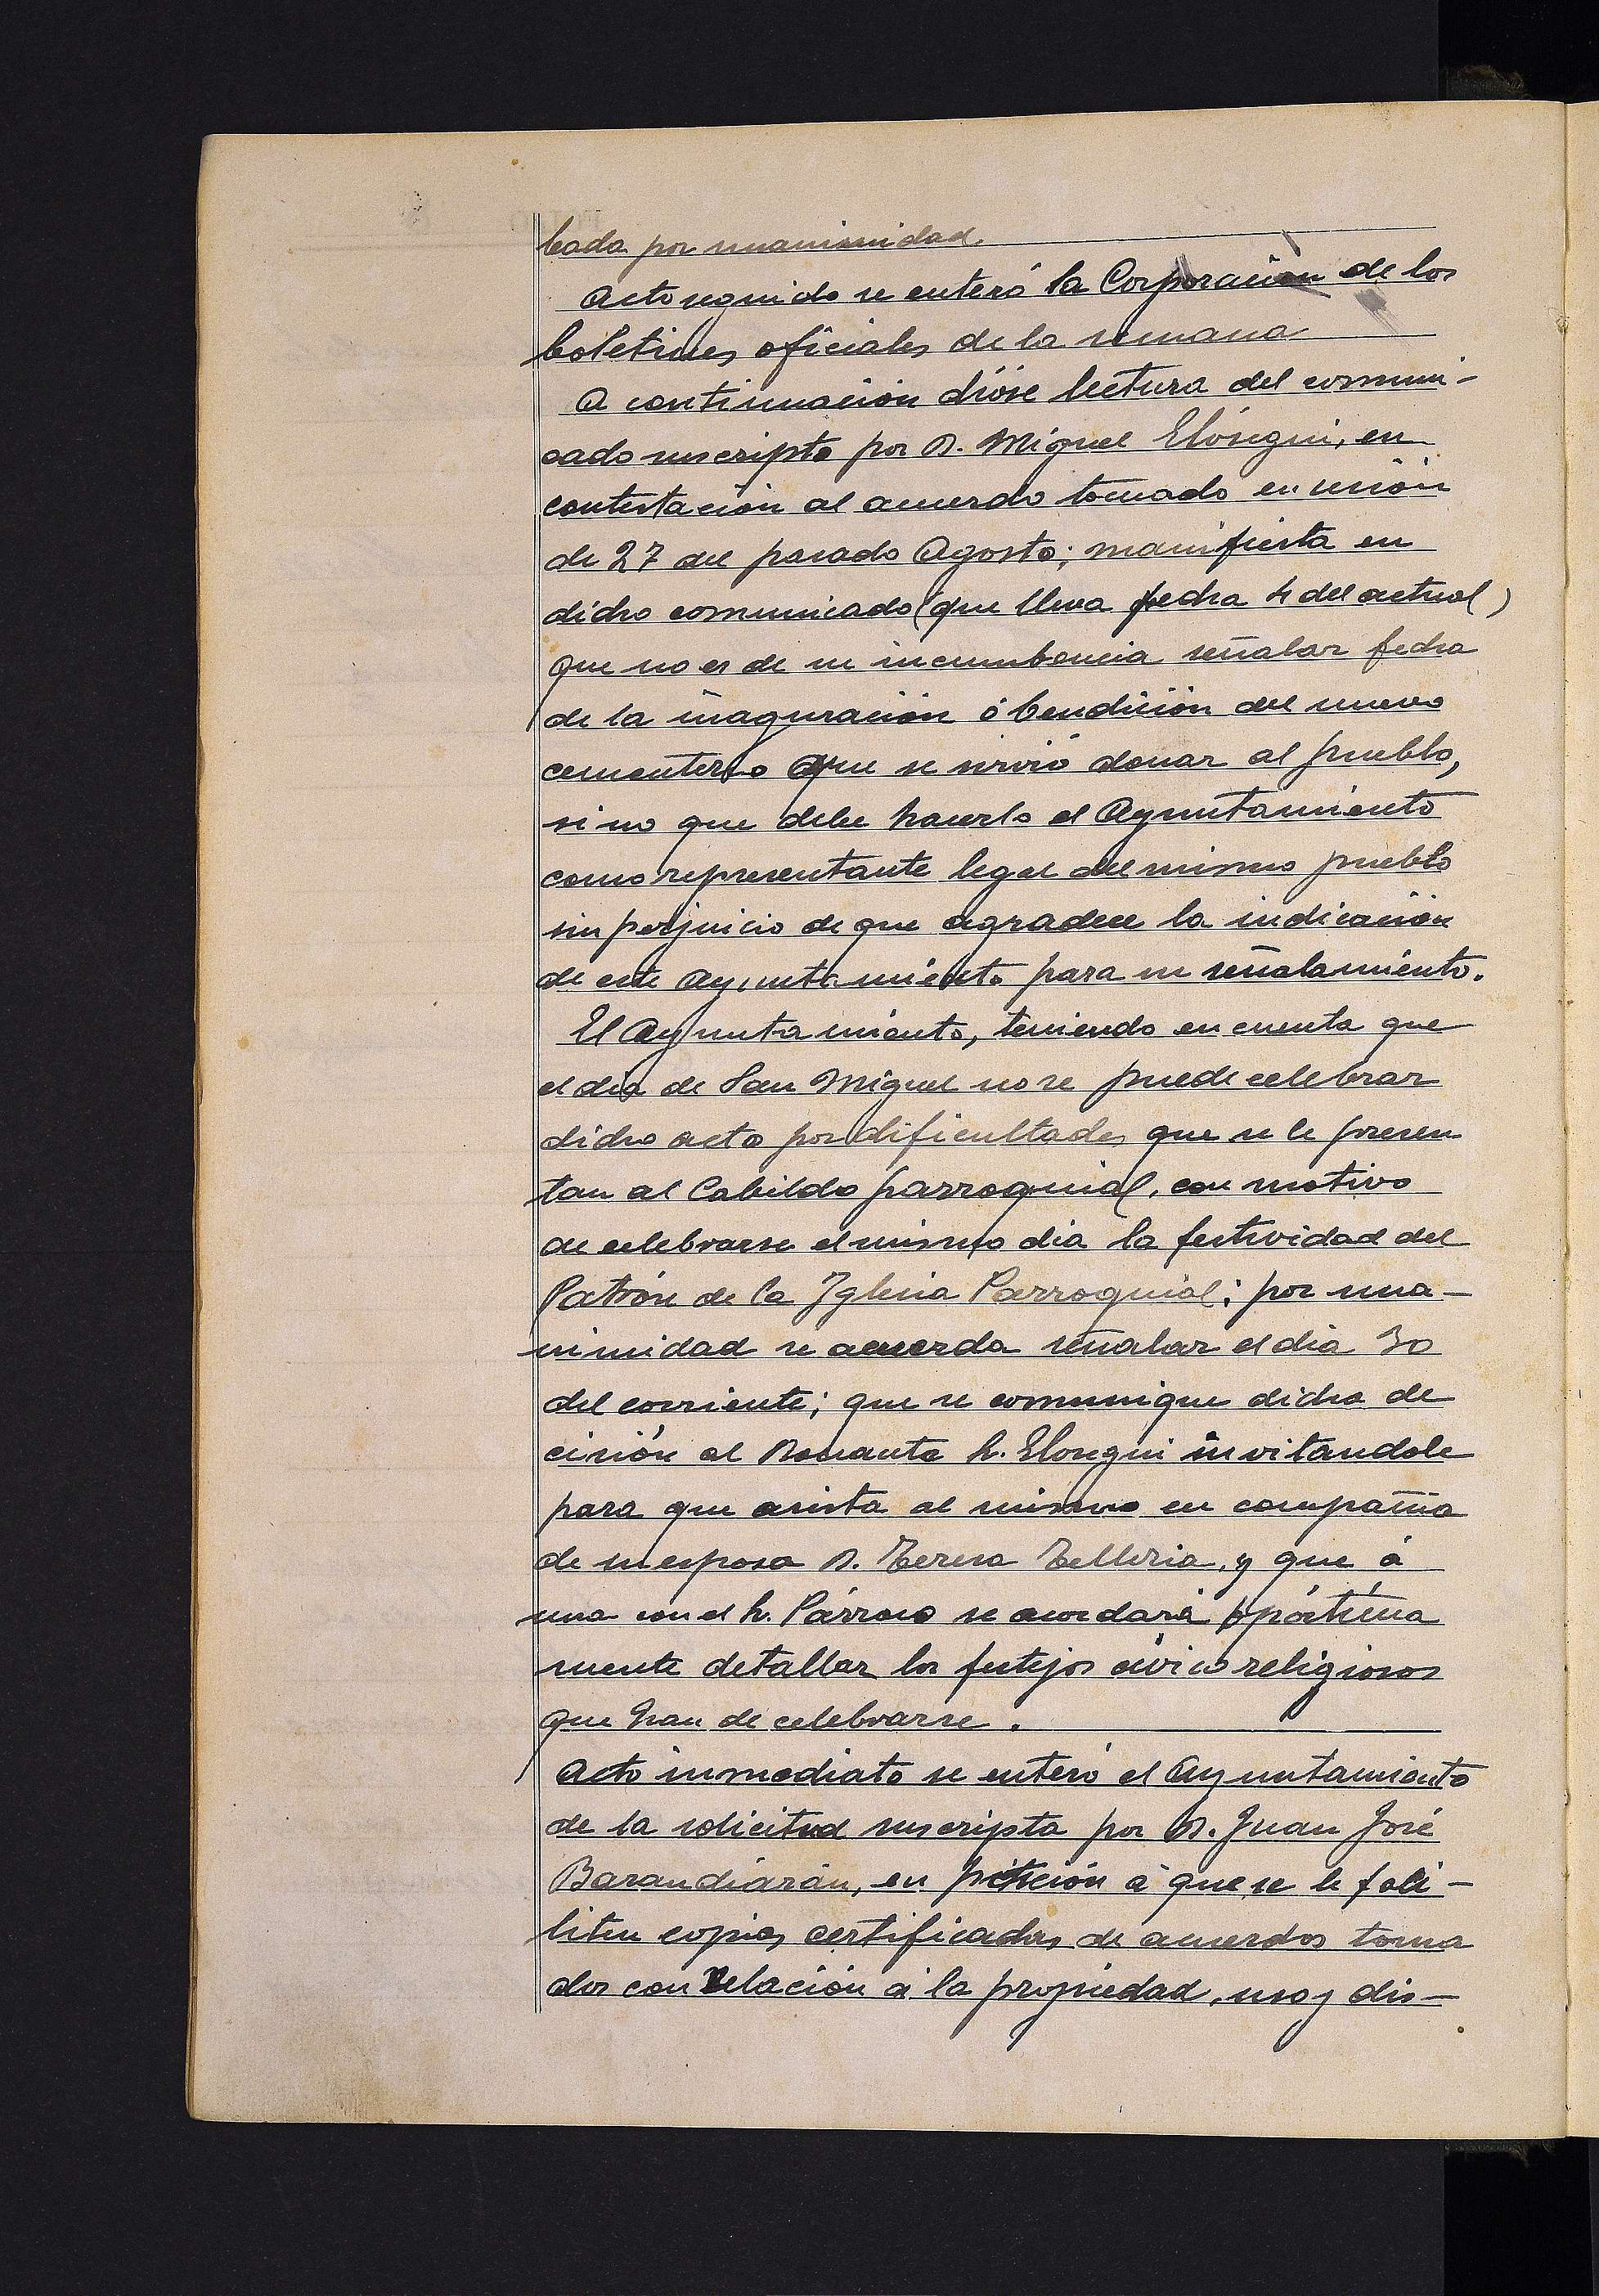 bada por unanimidad.
Acto seguido se enteró la Corporación de los
boletines oficiales de la semana
A continuación dióse lectura del comuni-
cado suscripto por D. Miguel Elósegui, en
contestación al acuerdo tomado en sesión
de 27 del pasado Agosto; manifiesta en
dicho comunicado (que lleva fecha 4 del actual)
que no es de su incumbencia señalar fecha
de la inaguración ó bendición del nuevo
cementerio que se sirvió donar al pueblo,
si no que debe hacerlo el Ayuntamiento
como representante legal del mismo pueblo
sin perjuicio de que agradece la indicación
de este Ayuntamiento para su señalamiento.
El Ayuntamiento, teniendo en cuenta que
el dia de San Miguel no se puede celebrar
dicho acto por dificultades que se le presen
tan al Cabildo parroquial, con motivo
de celebrarse el mismo dia la festividad del
Patrón de la Iglesia Parroquial; por una-
nimidad se acuerda señalar el dia 30
del corriente; que se comunique dicha de
cisión al Donante Sr. Elosegui invitandole
para que asista al mismo en compañia
de su esposa D. Teresa Telleria, y que á
una con el Sr. Párroco se acordará opórtúna
mente detallar los festejos civico religiosos
que han de celebrarse.
Acto inmediato se enteró el Ayuntamiento
de la solicitud suscripta por D. Juan José
Barandiarán, en petición á que se le fali-
liten copias certificadas de acuerdos toma
dos con relación á la propiedad, uso y dis-